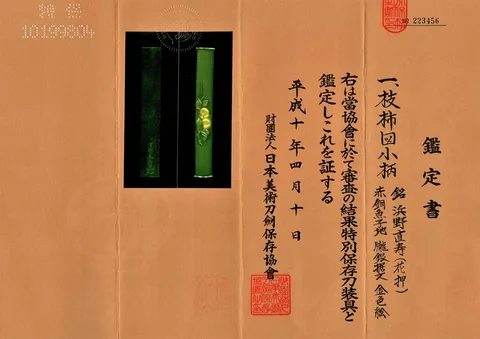 特保
10199804
№ 223456
鑑定書
一、枝柿図小柄 銘 浜野直寿(花押)
赤銅魚子地 朧銀据文 金色絵
右は當協會に於て審査の結果特別保存刀装具と
鑑定しこれを証する
平成十年四月十日
財團法人日本美術刀劍保存協會